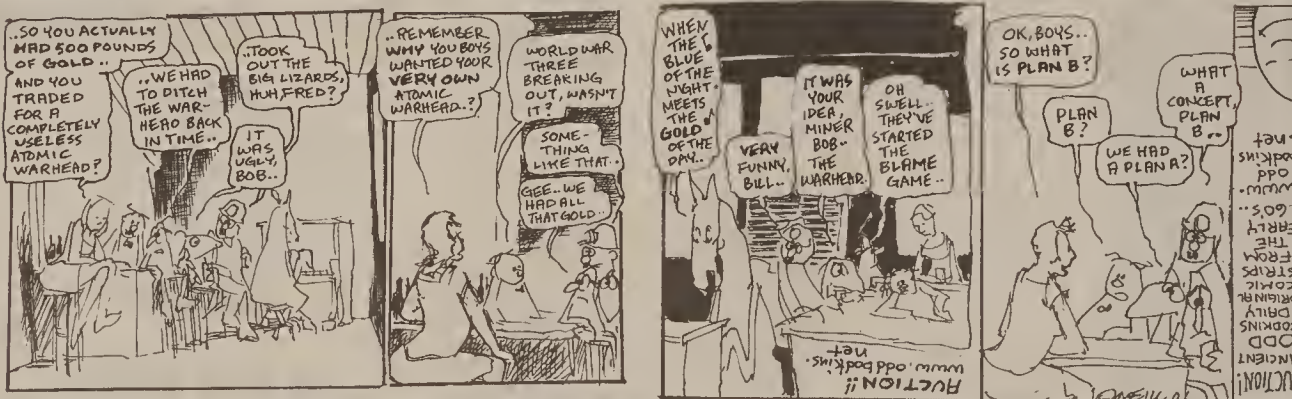 ..SO YOU ACTUALLY
HAD 500 POUNDS
OF GOLD..
AND YOU
TRADED
FOR A
COMPLETELY
USELESS
ATOMIC
WARHEAD?
..WE HAD
TO DITCH
THE WAR-
HEAD BACK
IN TIME..
..TOOK
OUT THE
BIG LIZARDS,
HUH, FRED?
IT
WAS
UGLY,
BOB..
..REMEMBER
WHY YOU BOYS
WANTED YOUR
VERY OWN
ATOMIC
WARHEAD..?
WORLD WAR
THREE
BREAKING
OUT, WASN'T
IT?
SOME-
THING
LIKE THAT..
GEE..WE
HAD ALL
THAT GOLD..
WHEN
THE
BLUE
OF THE
NIGHT
MEETS
THE
GOLD
OF THE
DAY..
VERY
FUNNY,
BILL..
IT WAS
YOUR
IDEA,
MINER
BOB--
THE
WARHEAD.
OH
SWELL..
THEY'VE
STARTED
THE
BLAME
GAME..
AUCTION!!
www.oddbodkins.
net
OK, BOYS..
SO WHAT
IS PLAN B?
PLAN
B?
WE HAD
A PLAN A?
WHAT
A
CONCEPT,
PLAN
B..
O'NEILL
AUCTION!
ANCIENT
ODD
BODKINS
DAILY
ORIGINAL
COMIC
STRIPS
FROM
THE
EARLY
60'S..
www.
odd
bodkins
.net